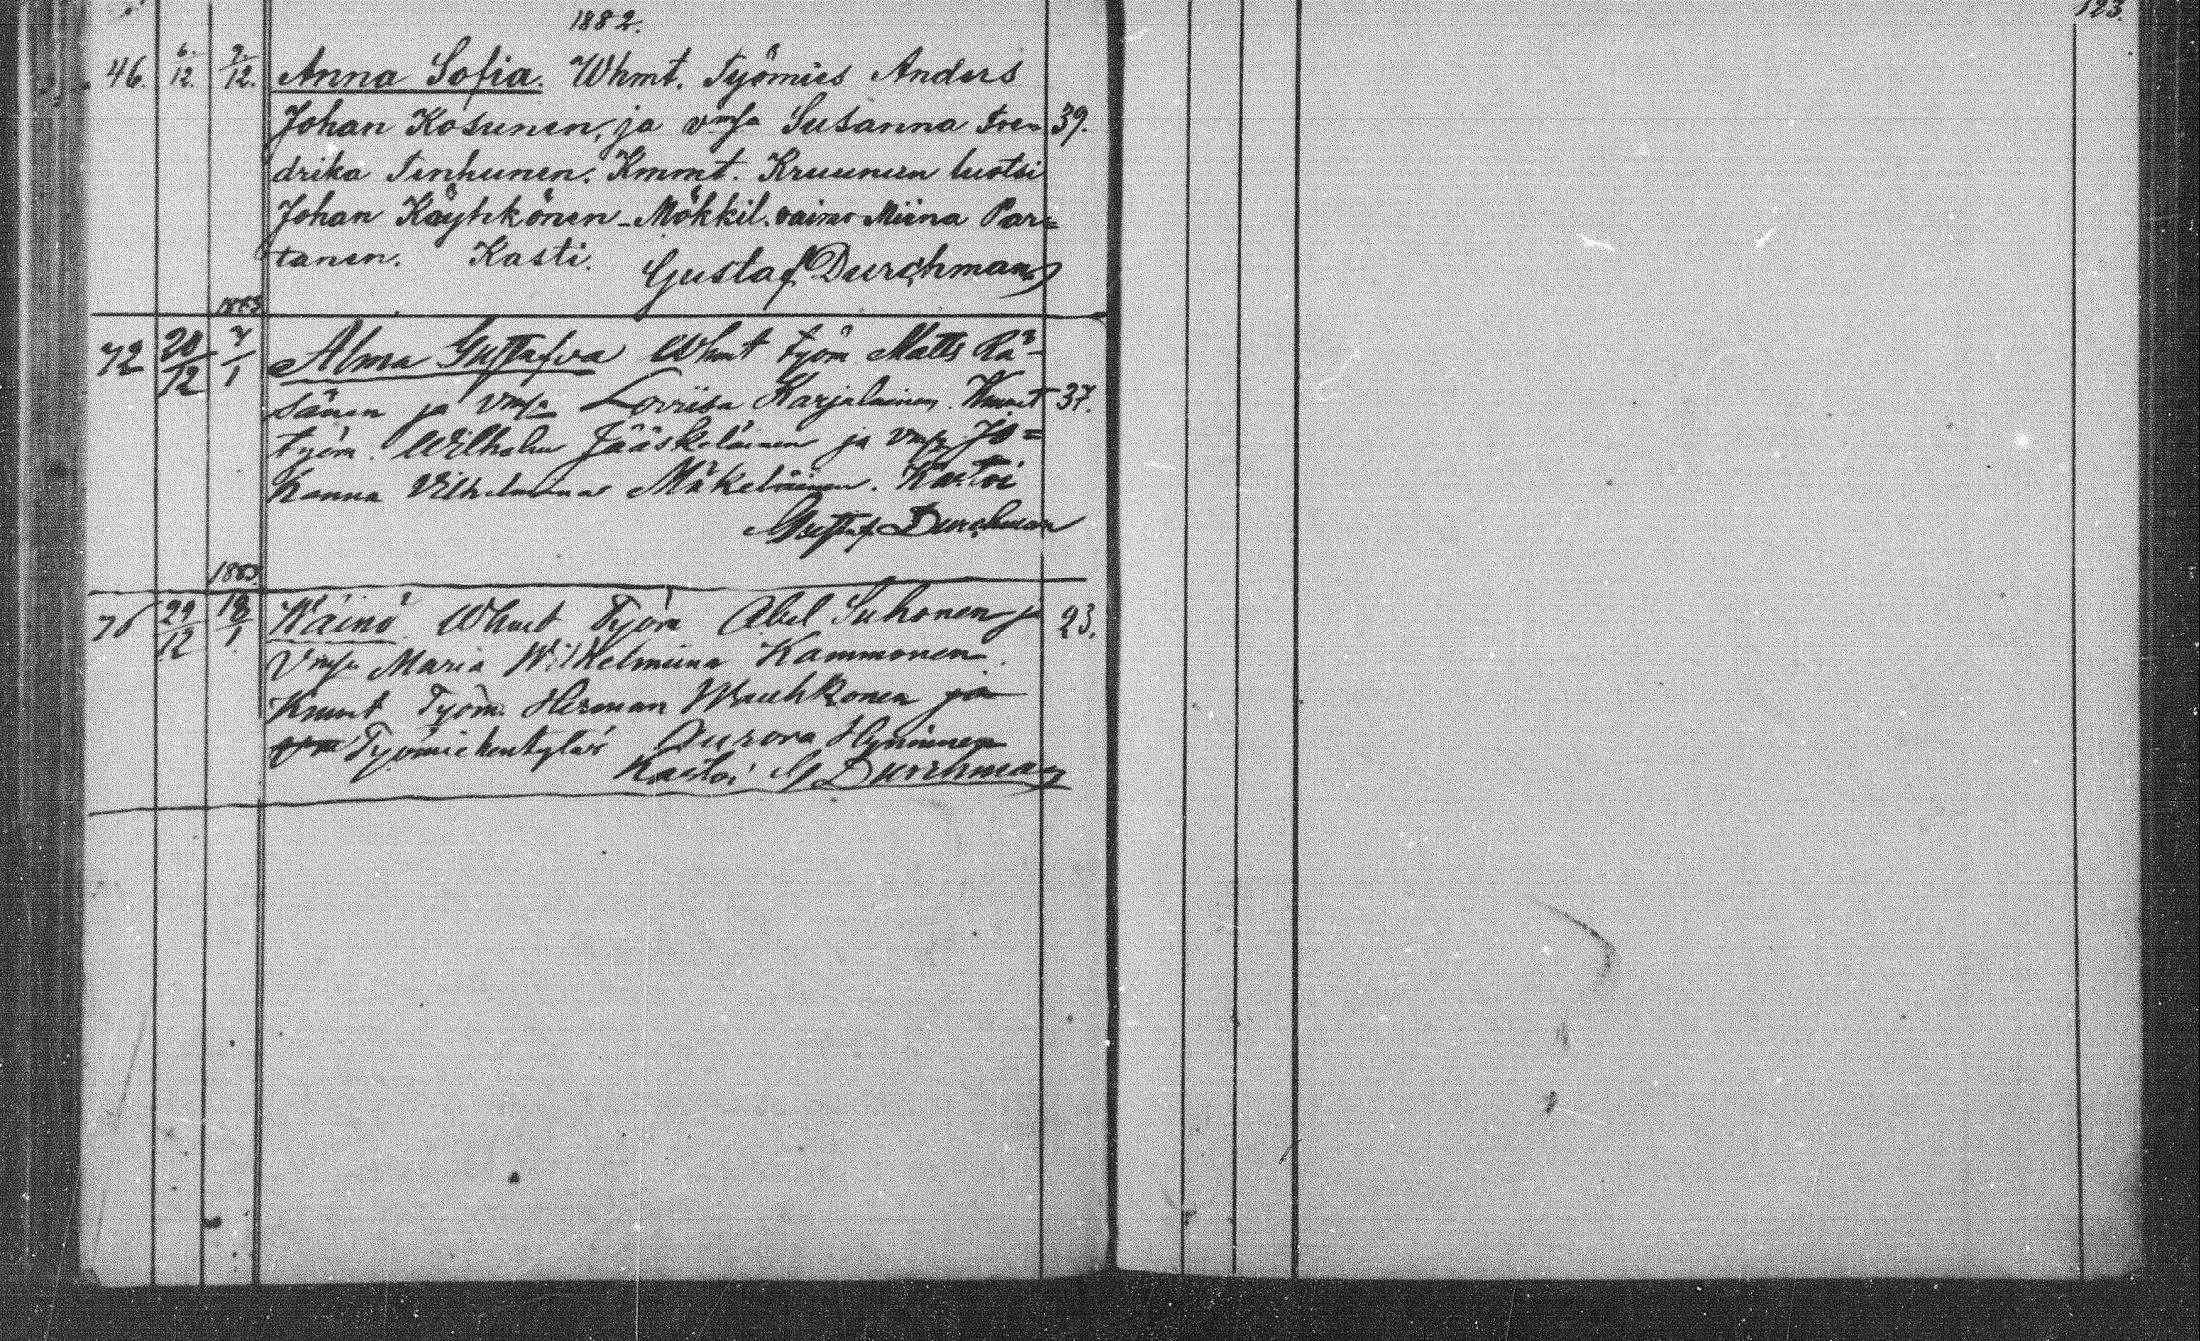 1882.
123.
46. 6/12. 9/12. Anna Sofia. Whmt. Työmies Anders
Johan Kosunen, ja vmsa Susanna Fre= 39.
drika Tenhunen. Kmmt. Kruunun luotsi
Johan Käyhkönen - Mökkil. vaimo Miina Par=
tanen. Kasti. Gustaf Durchman
1883
72 20/12 7/1 Alma Gustafva Whmt työm Matts Rä-
sänen ja vmsa Lovisa Karjalainen. Kmmt 37.
työm. Wilhelm Jääskeläinen ja vmsa Jo=
hanna Vilhelmina Mäkeläinen. Kastoi
Gustaf Durchman
1883.
76 29/12 18/1 Wäinö Whmt Työm Abel Suhonen ja 23.
Vmsa Maria Wilhelmiina Kammonen.
Kmmt Työm. Herman Wauhkonen ja
Työmiehentytär Aurora Hyninnen
Kastoi G Durchman